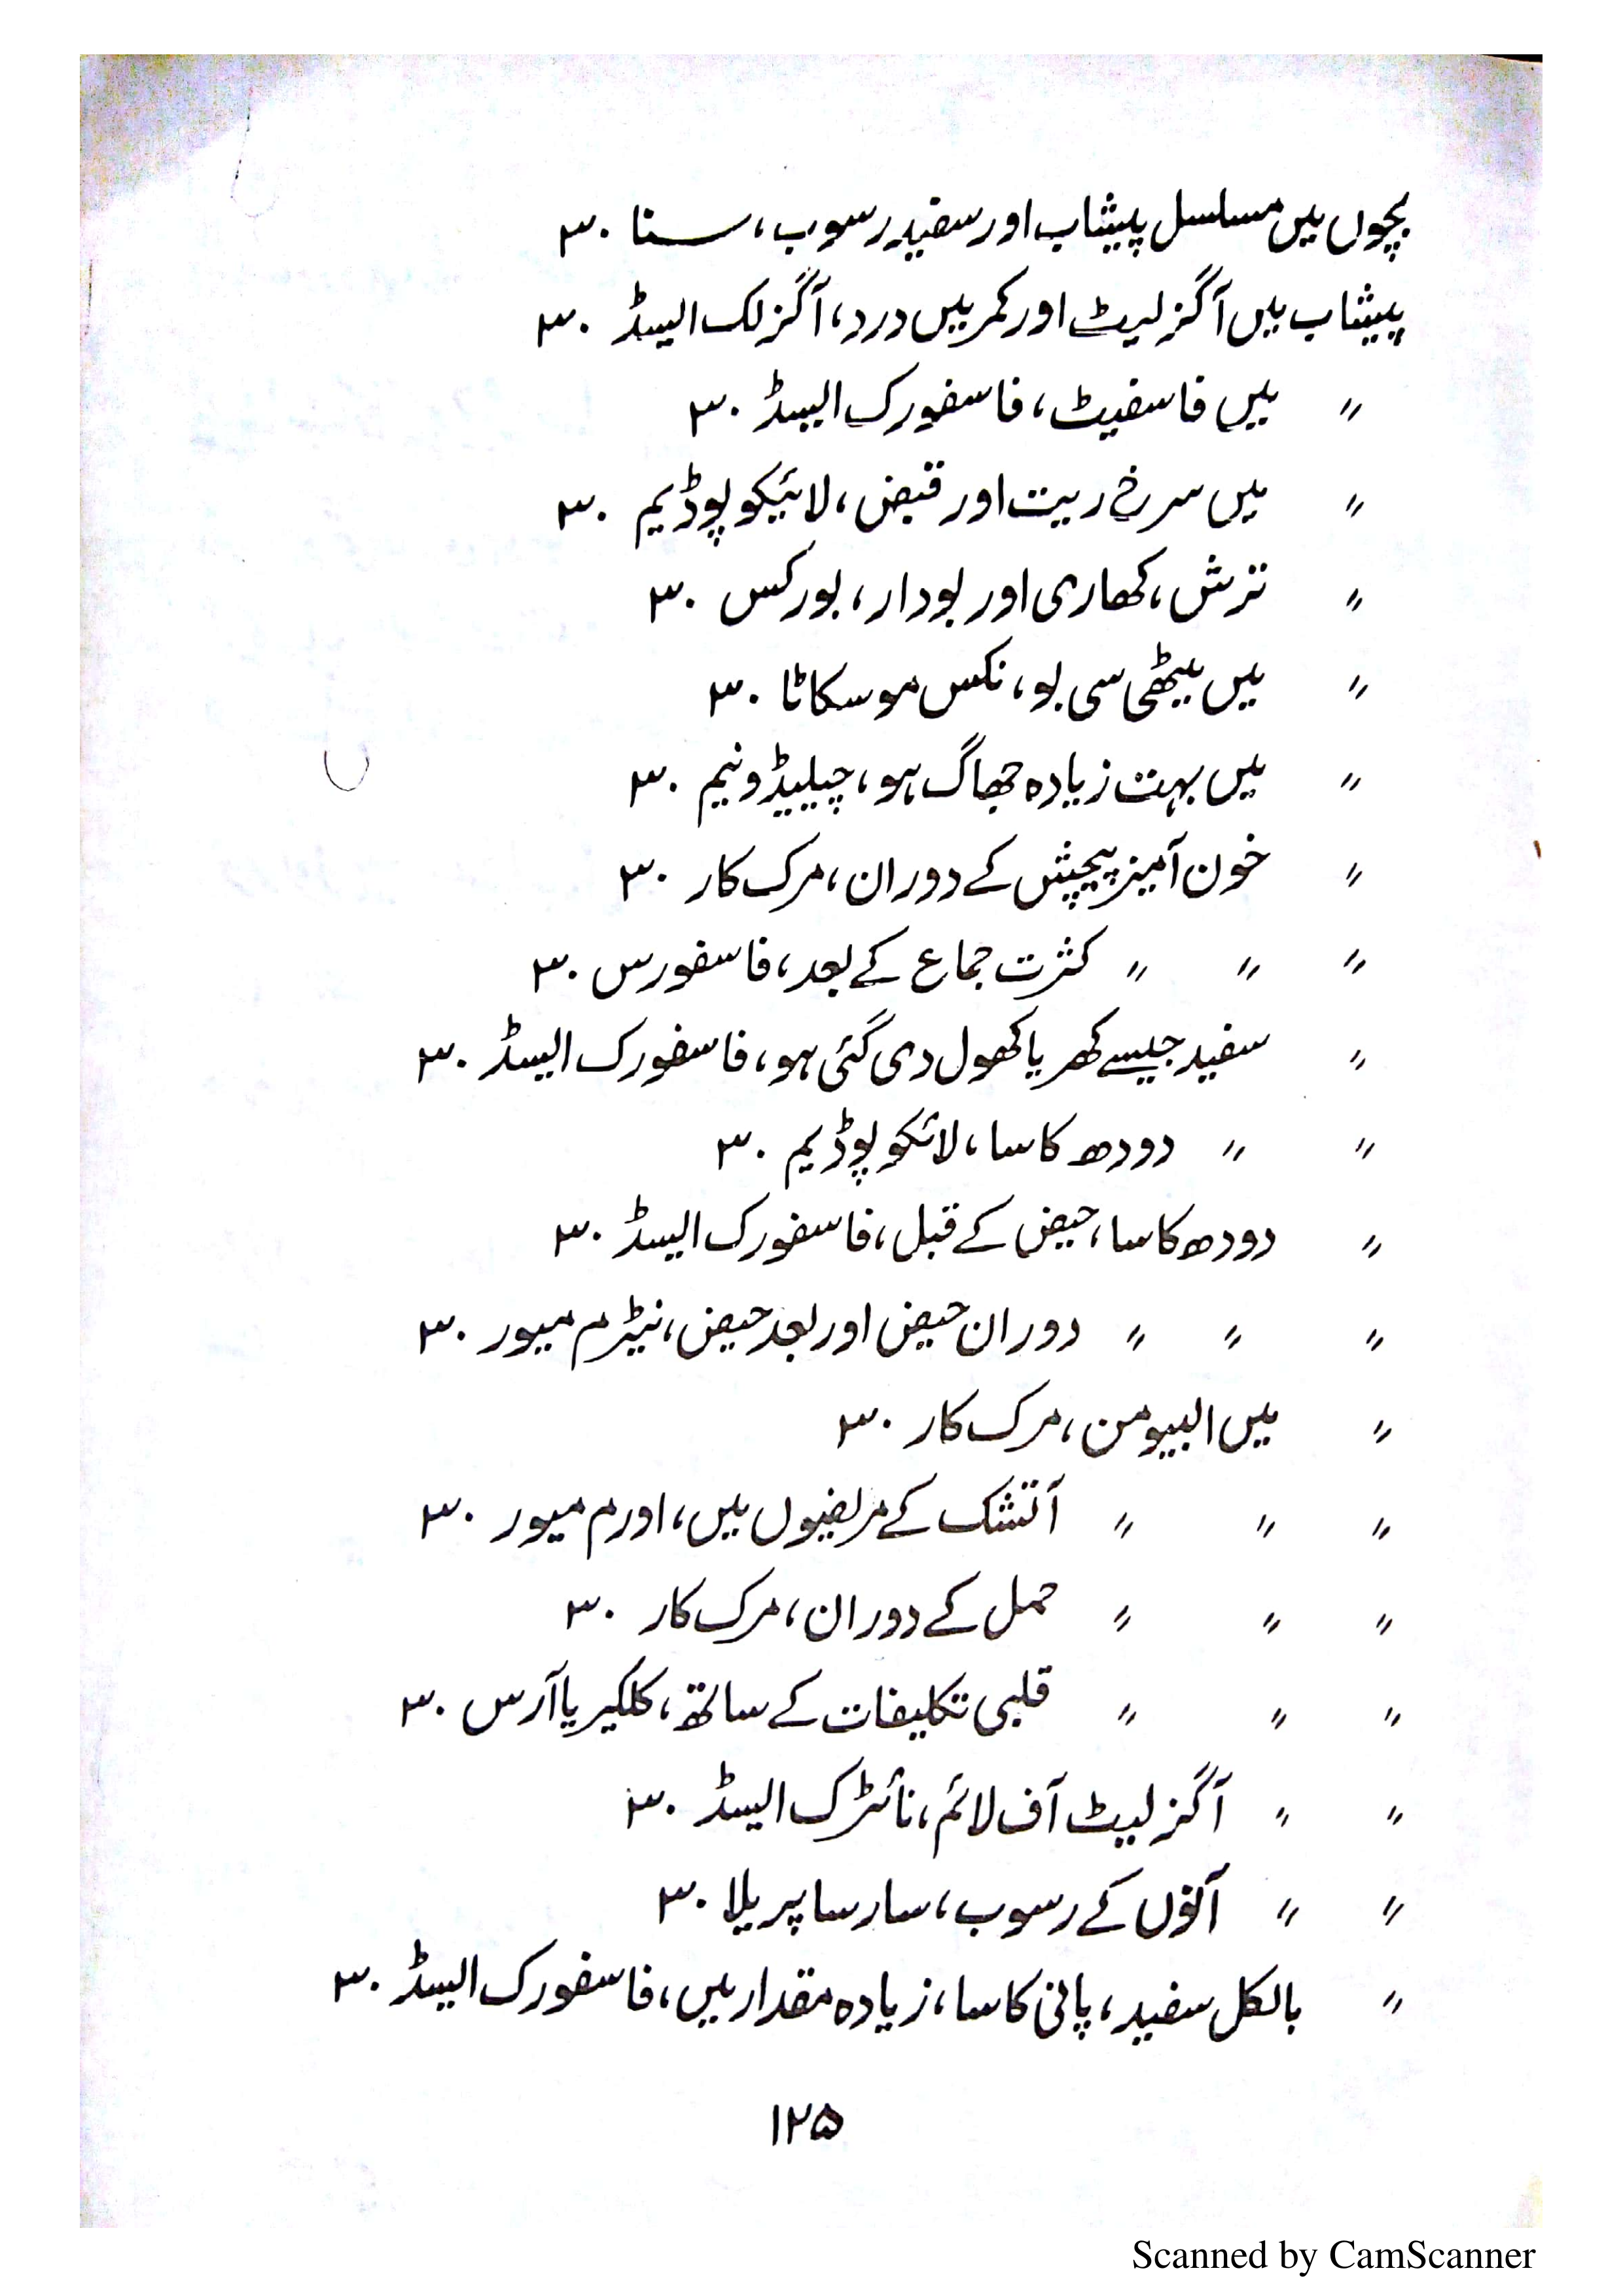 بچوں میں مسلسل پیشاب اور سفید رسوب، سنا ۳۰
پیشاب میں آگزلیٹ اور کمر میں درد، آگزلک ایسڈ ۳۰
〃 میں فاسفیٹ، فاسفورک ایسڈ ۳۰
〃 میں سرخ ریت اور قبض، لائیکوپوڈیم ۳۰
〃 ترش، کھاری اور بودار، بورکس ۳۰
〃 میں میٹھی سی بو، نکس موسکاٹا ۳۰
〃 میں بہت زیادہ جھاگ ہو، چیلیڈونیم ۳۰
〃 خون آمیز پیچیش کے دوران، مرک کار ۳۰
〃 〃 〃 کثرت جماع کے بعد، فاسفورس ۳۰
〃 سفید جیسے کھریا کھول دی گئی ہو، فاسفورک ایسڈ ۳۰
〃 〃 دودھ کا سا، لائکوپوڈیم ۳۰
〃 دودھ کا سا، حیض کے قبل، فاسفورک ایسڈ ۳۰
〃 〃 〃 دوران حیض اور بعد حیض، نیٹرم میور ۳۰
〃 میں البیومن، مرک کار ۳۰
〃 〃 〃 آتشک کے مریضوں میں، اورم میور ۳۰
〃 〃 〃 حمل کے دوران، مرک کار ۳۰
〃 〃 〃 قلبی تکلیفات کے ساتھ، کلکیریا آرس ۳۰
〃 〃 آگزلیٹ آف لائم، نائٹرک ایسڈ ۳۰
〃 〃 کے رسوب، سارساپریلا ۳۰
〃 بالکل سفید، پانی کا سا، زیادہ مقدار میں، فاسفورک ایسڈ ۳۰
۱۲۵
Scanned by CamScanner